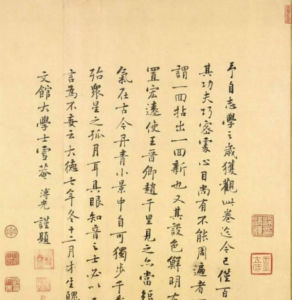 予自志學之歲獲觀此卷迄今已僅百
其功夫巧密處心目尚有不能周遍者
謂一回拈出一回新也又其設色鮮明布
置宏遠使王晉卿趙千里見之亦當短
氣在古今丹青小景中自可獨步千
殆眾星之孤月耳具眼知音之士必以
言為不妄云大德七年冬十二月才生魄
文館大學士雪菴溥光謹題